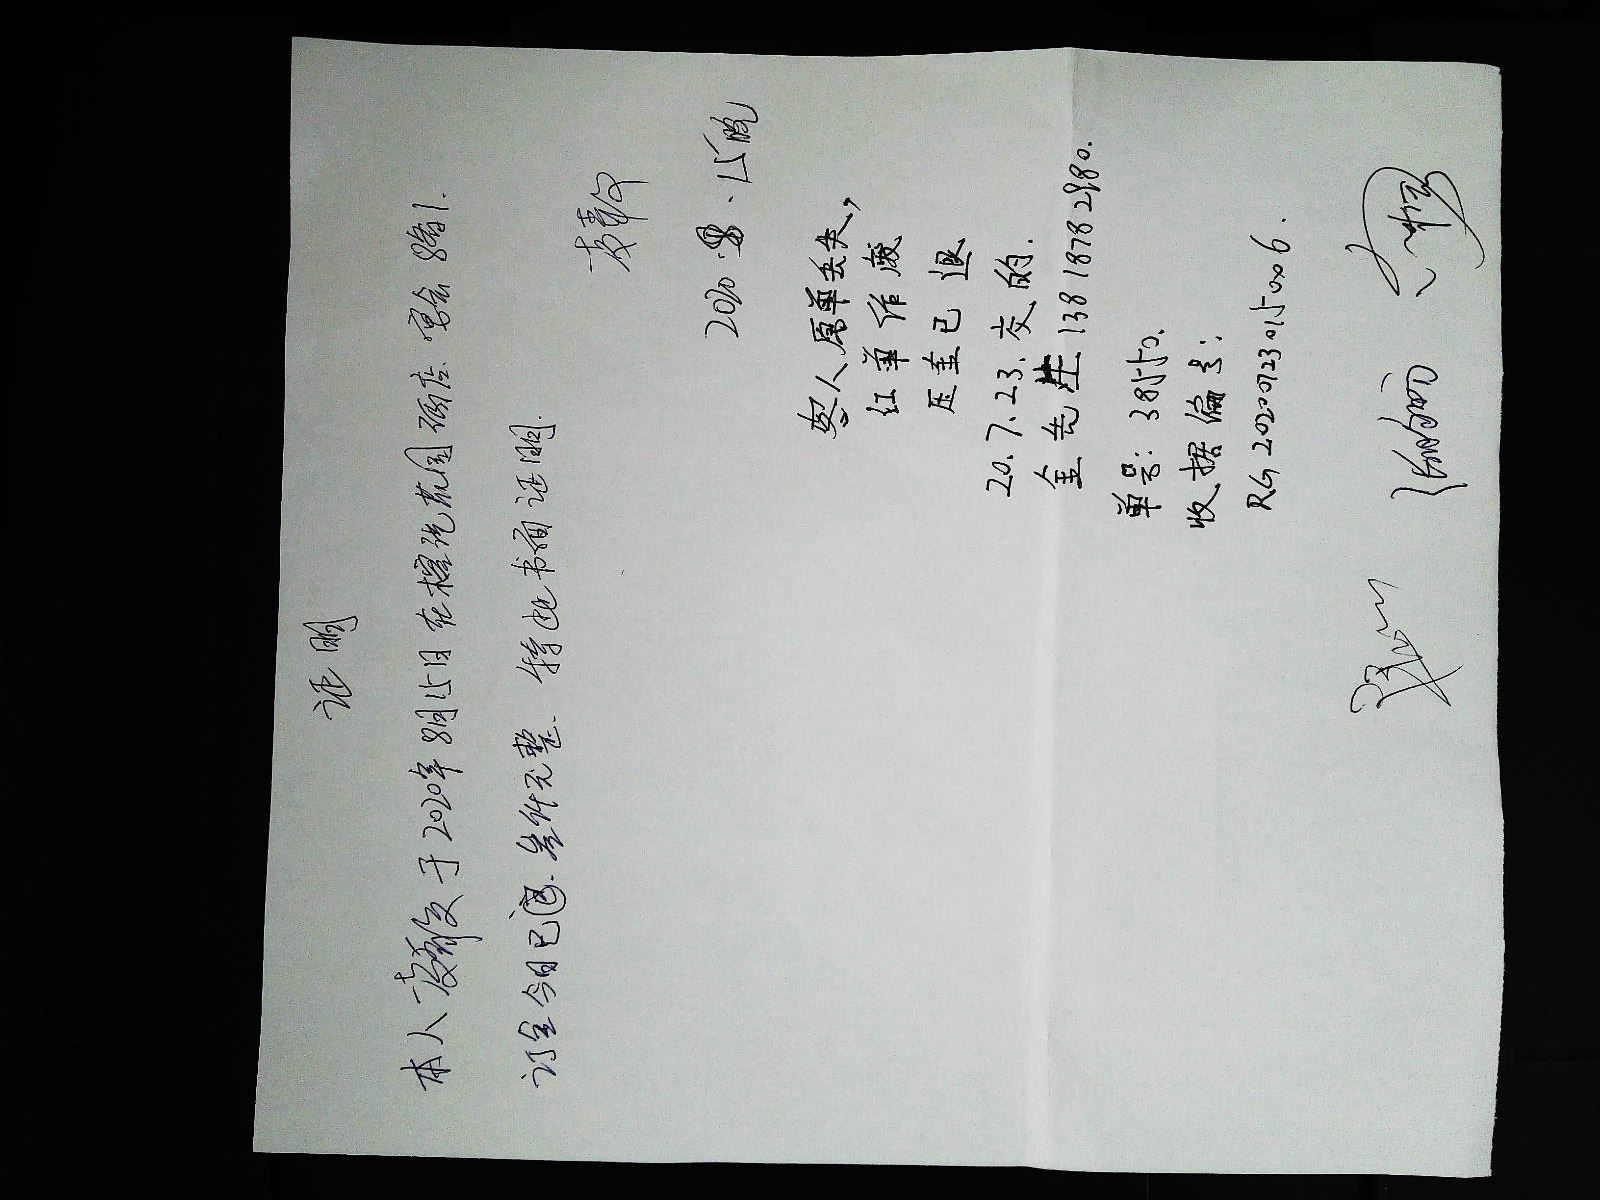 证明
本人于2020年8月15日在檀悦花园酒店宴会8号1.
订金今日已退.柴仟元整.特此书面证明.
2020.8.15晚
客人原单丢失,
红单作废
压金已退
20.7.23.交的.
金先生 13818782980.
单号: 38550.
收据编号:
RG20200723015006.